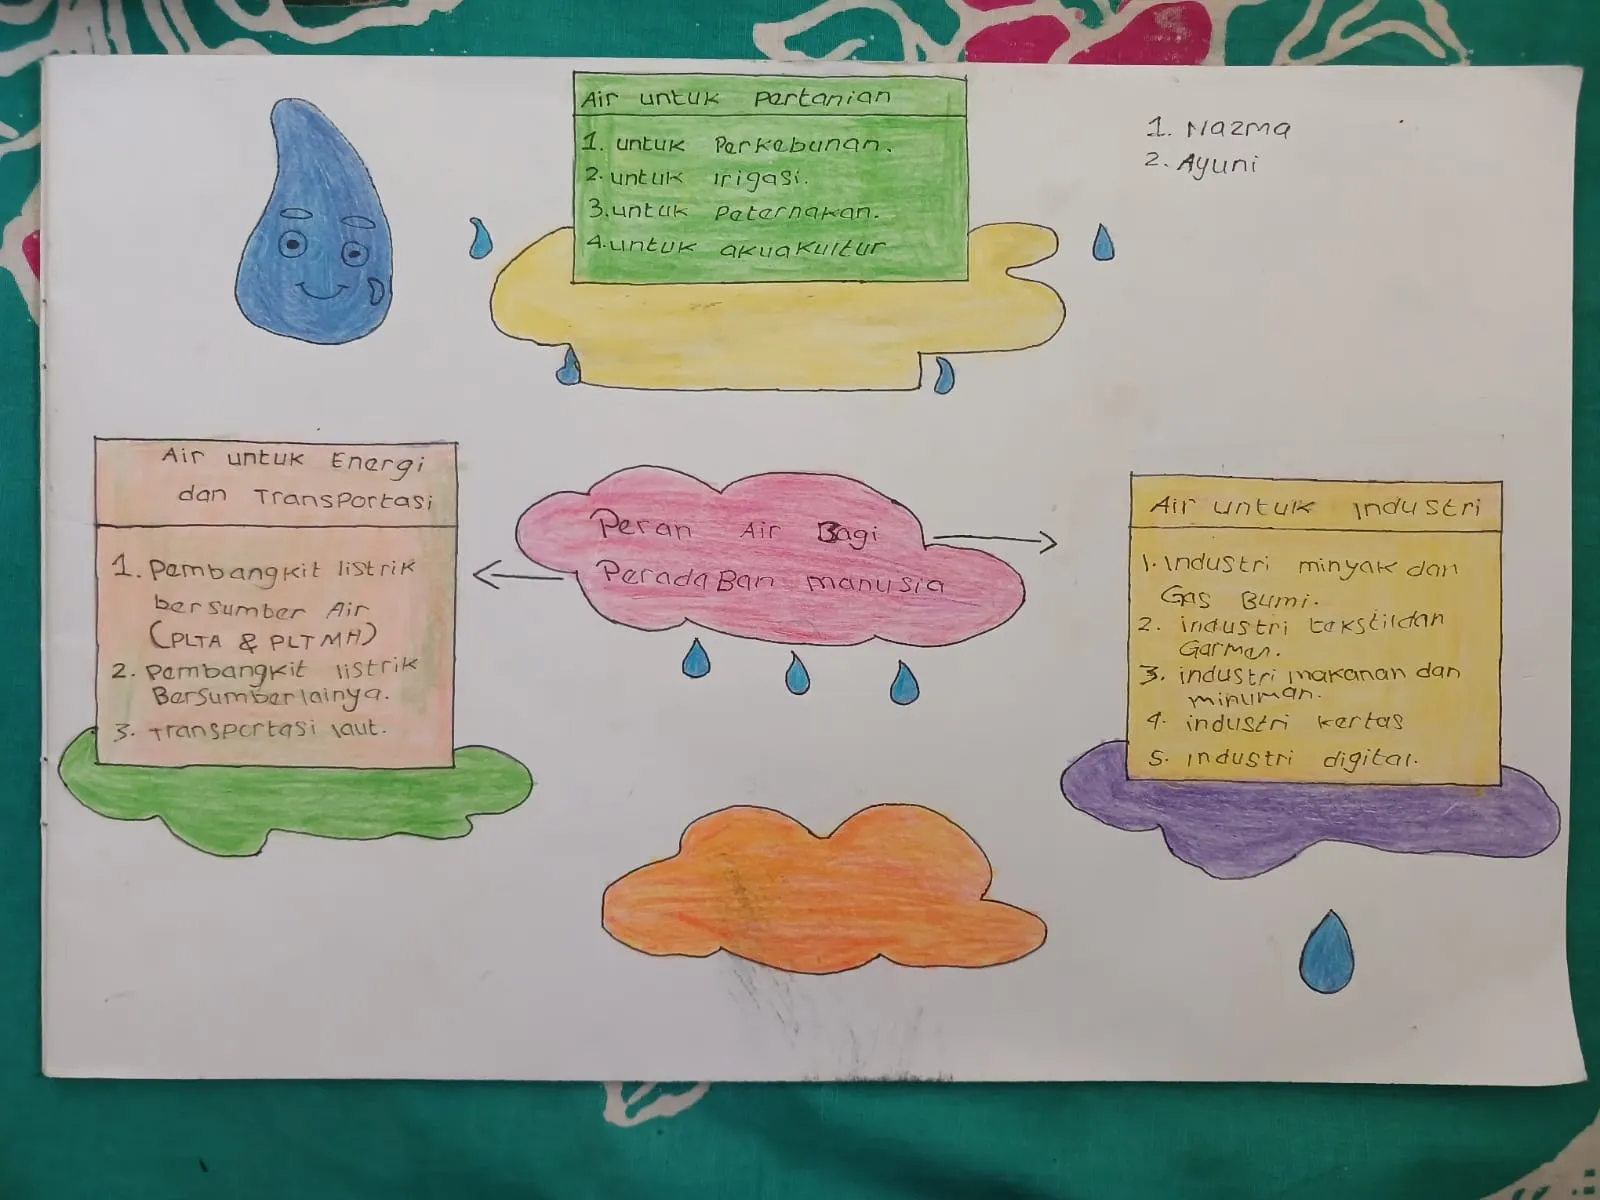 Air untuk Pertanian
1. untuk Perkebunan.
2. untuk irigasi.
3. untuk Peternakan.
4. untuk akuakultur
1. Nazma
2. Ayuni
Air untuk Energi
dan Transportasi
1. Pembangkit listrik
bersumber Air
(PLTA & PLTMH)
2. Pembangkit listrik
Bersumber lainya.
3. Transportasi laut.
Peran Air Bagi
PeradaBan manusia
Air untuk Industri
1. Industri minyak dan
Gas Bumi.
2. industri tekstil dan
Garmen.
3. industri makanan dan
minuman.
4. industri kertas
5. industri digital.